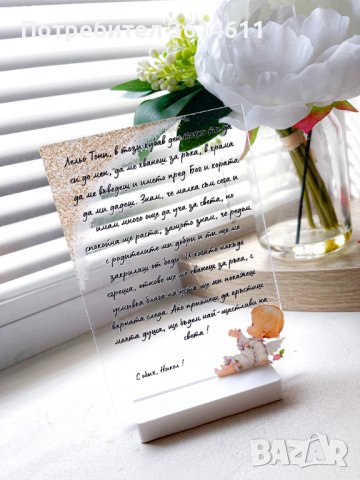 Потребител 3614611
Лельо Тони, в този хубав ден
си до мен, да ме хванеш за ръка, в храма
да ме въведеш и името пред Бог и хората,
да ми дадеш. Знам, че малка съм сега и
имам много още да уча за света, но
спокойна ще раста, защото знам, че редом
с родителите ми добри и ти ще ме
закриляш от беди. И когато някъде
сгреша, отново ще ме хванеш за ръка, с
усмивка блага на уста ще ми покажеш
вярната следа. Ако приемеш да кръстиш
моята душа, ще бъдем най-щастливи на
света !
С обич, Никол !
BAZAR
bg